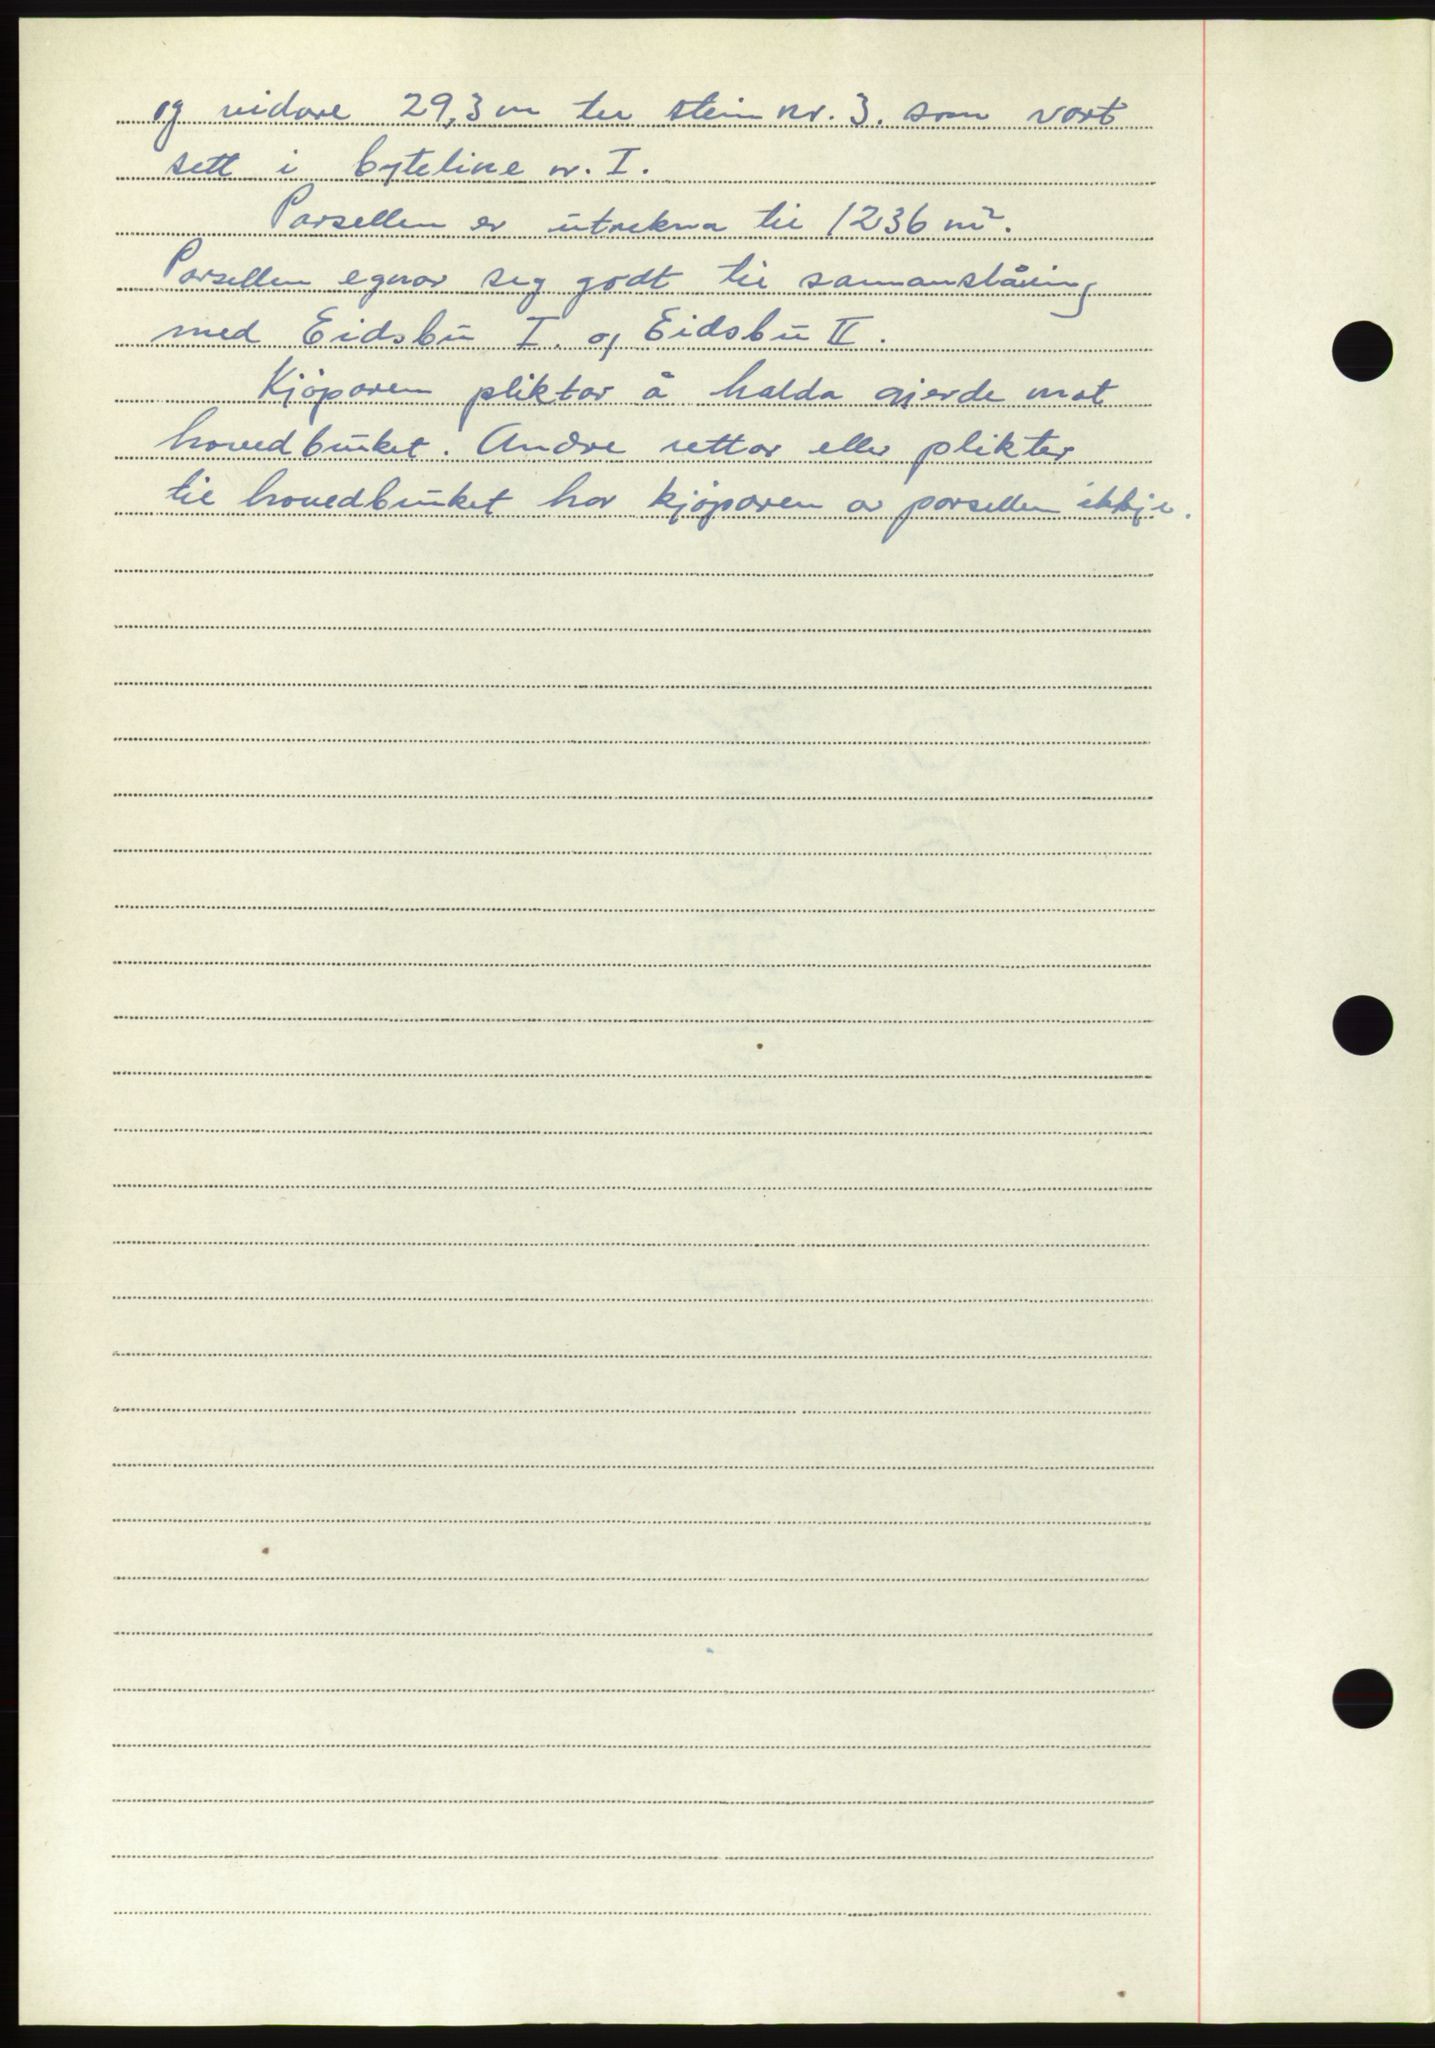 og vidare 29,3 m til stein nr. 3. som vart
sett i byteline nr. I.
Parsellen er utrekna til 1236 m².
Parsellen egnar seg godt til samanslåing
med Eidsbu I. og Eidsbu II.
Kjöparen pliktar å halda gjerde mot
hovedbruket. Andre rettar eller plikter
til hovedbruket har kjöparen av parsellen ikkje.